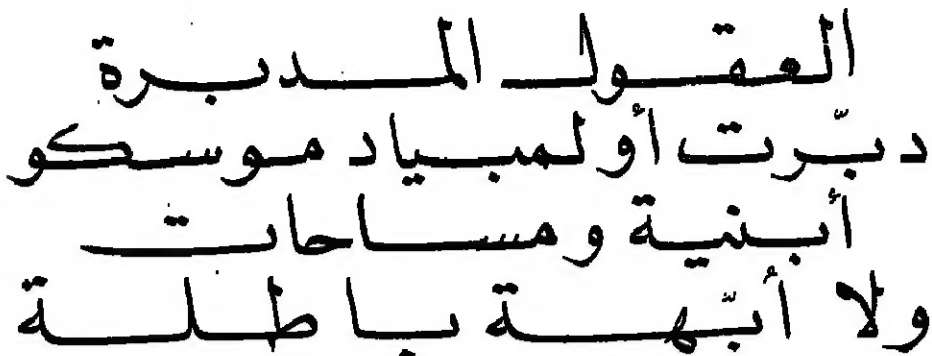 العقول المدبرة
دبّرت أولمبياد موسكو
أبنية ومساحات
ولا أبّهة باطلة